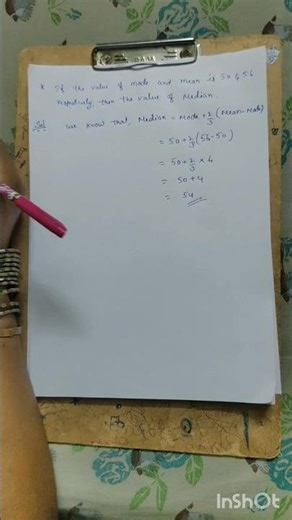 * If the value of mode and mean is 50 & 56
respectively, then the value of Median.
Sol. we know that, Median = Mode + 2/3 (Mean-Mode)
= 50 + 2/3 (56-50)
= 50 + 2/3 × 6
= 50 + 4
= 54
InShOt